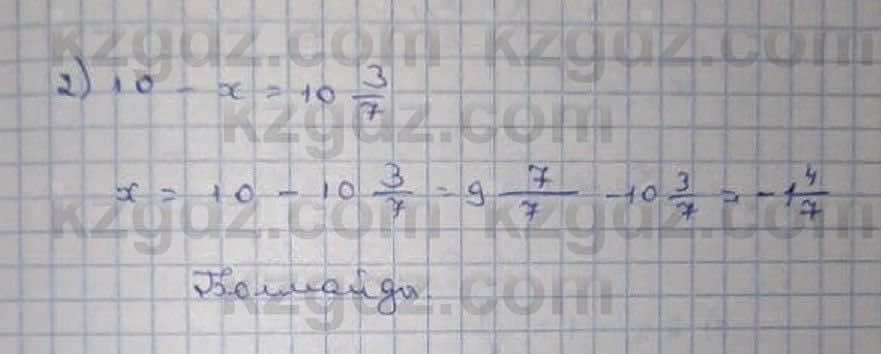 kzgdz.com kzgdz.com
2) 10 - x = 10 3/7
kzgdz.com
x = 10 - 10 3/7 = 9 7/7 - 10 3/7 = - 1 4/7
kzgdz.com kzgdz.com
Болмайды.
kzgdz.com